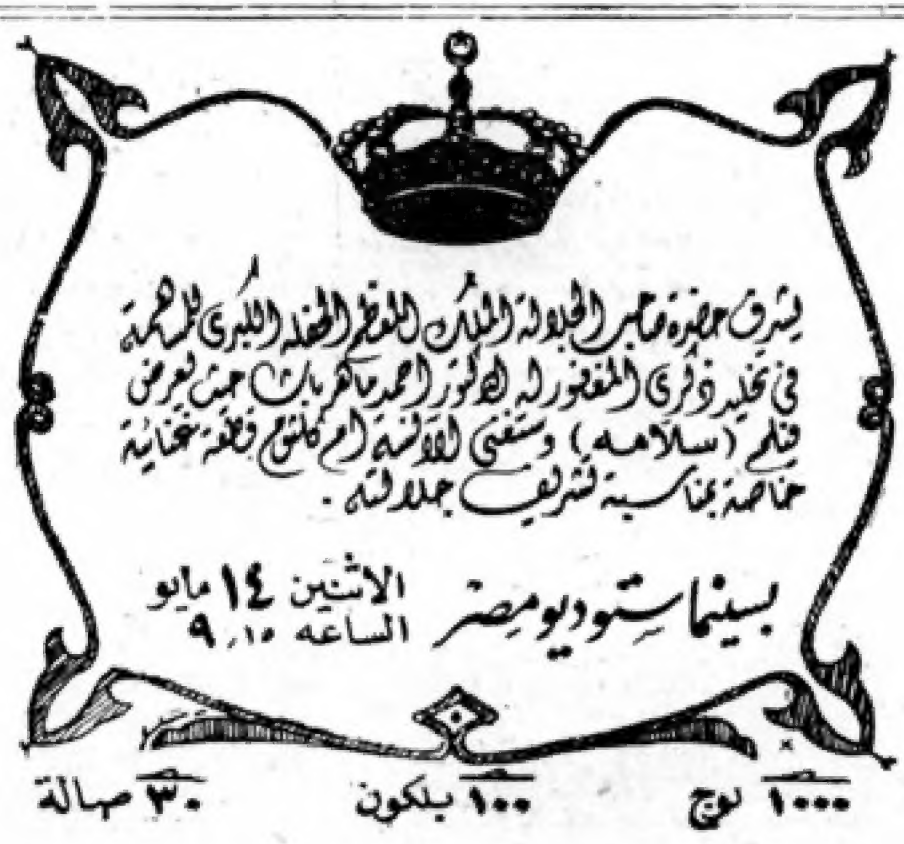 يشرف حضرة صاحب الجلالة الملك المعظم الحفله الكبرى للمساهمة
في تخليد ذكرى المغفور له الدكتور احمد ماهر باشا حيث يعرض
فيلم (سلامه) وستغنى الآنسة ام كلثوم قطعة غنائية
خاصة بمناسبة تشريف جلالته .
بسينما ستوديو مصر
الاثنين ١٤ مايو
الساعه ٩,١٥
١٠٠٠ لوج
١٠٠ بلكون
٣٠ صالة